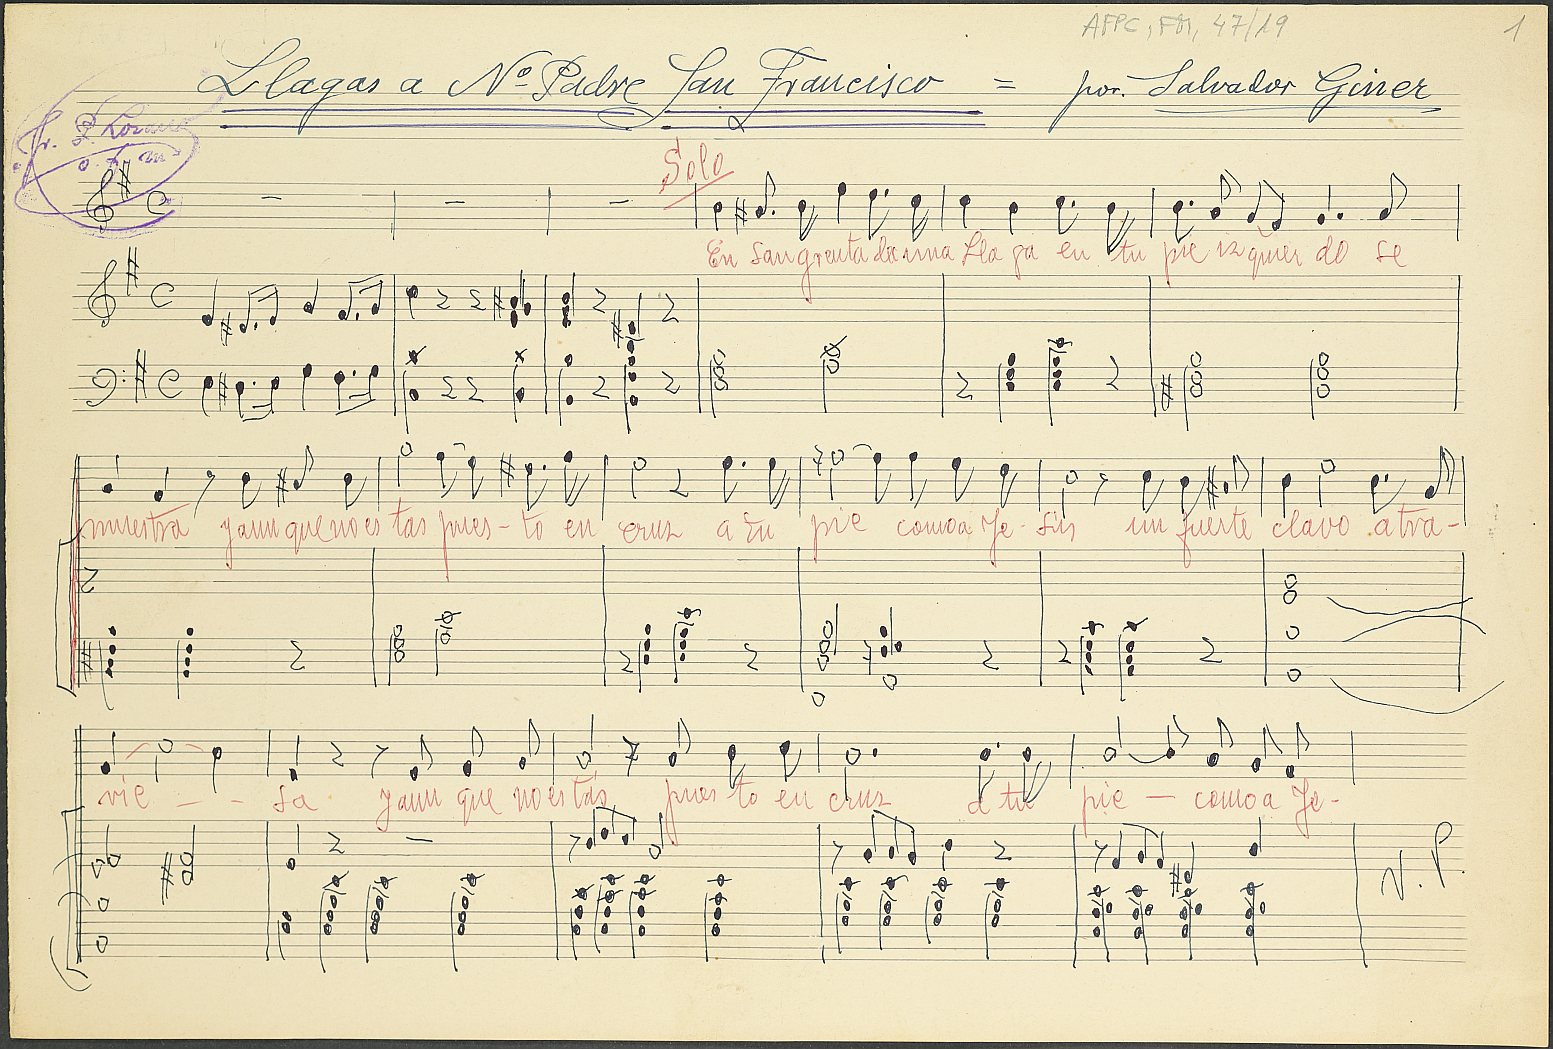 AFPC, FM, 47/19 1
Llagas a Nº Padre San Francisco = por. Salvador Giner
Fr. P. Lozano
o. f. m.
Solo
En sangrenta da una Lla ga en tu pie iz quier do se
muestra y aun que no es tas pues - to en cruz a tu pie como a Je - sús un fuerte clavo atra -
vie - - sa y aun que no estás pues to en cruz a tu pie — como a Je -
V. P.